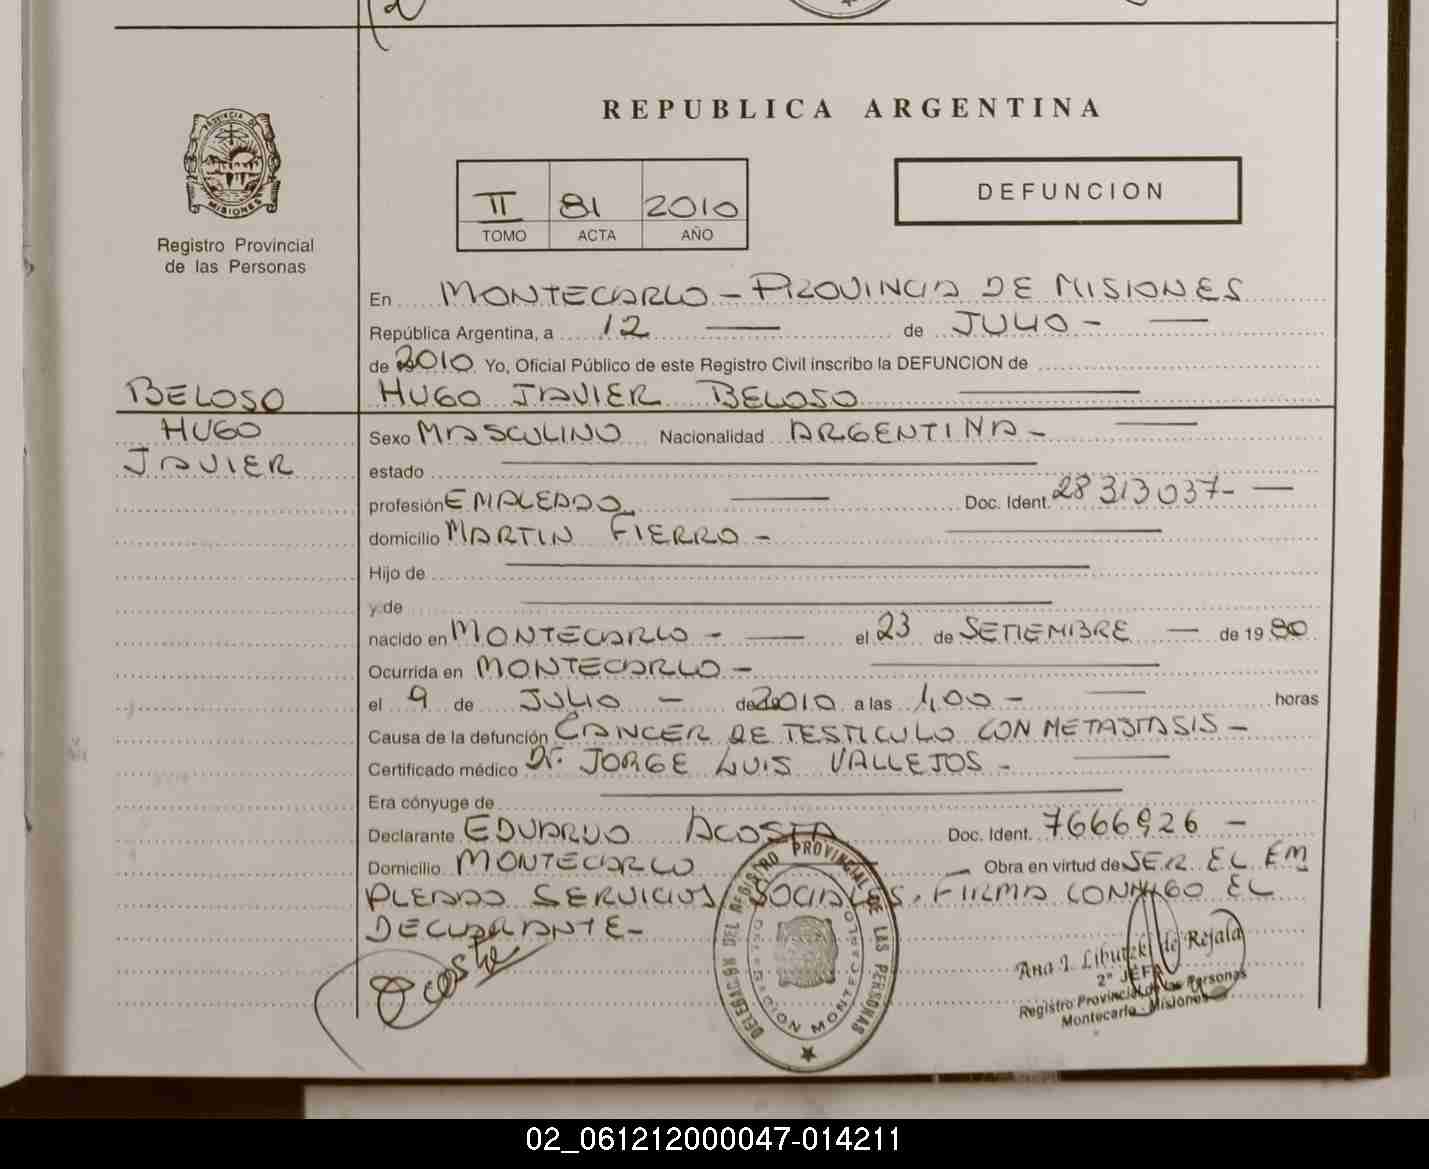 REPUBLICA ARGENTINA
PROVINCIA DE
MISIONES
Registro Provincial
de las Personas
II 81 2010
TOMO ACTA AÑO
DEFUNCION
En MONTECARLO - PROVINCIA DE MISIONES
República Argentina, a 12 de JULIO -
de 2010 Yo, Oficial Público de este Registro Civil inscribo la DEFUNCION de
HUGO JAVIER BELOSO
BELOSO
HUGO
JAVIER
Sexo MASCULINO Nacionalidad ARGENTINA -
estado
profesión EMPLEADO Doc. Ident. 28313037 -
domicilio MARTIN FIERRO -
Hijo de
y de
nacido en MONTECARLO - el 23 de SETIEMBRE - de 19 80
Ocurrida en MONTECARLO -
el 9 de JULIO - de 2010 a las 1,00 - horas
Causa de la defunción CANCER DE TESTICULO CON METASTASIS -
Certificado médico Dr. JORGE LUIS VALLEJOS -
Era cónyuge de
Declarante EDUARDO ACOSTA Doc. Ident. 7666926 -
Domicilio MONTECARLO - Obra en virtud de SER EL EM
PLEADO SERVICIOS SOCIALES, FIRMA CONMIGO EL
DECLARANTE -
Acosta
DELEGACION DEL REGISTRO PROVINCIAL DE LAS PERSONAS
DELEGACION MONTECARLO
Ana I. de Rejala
2° JEFA
Registro Provincial de las Personas
Montecarlo - Misiones
02_061212000047-014211